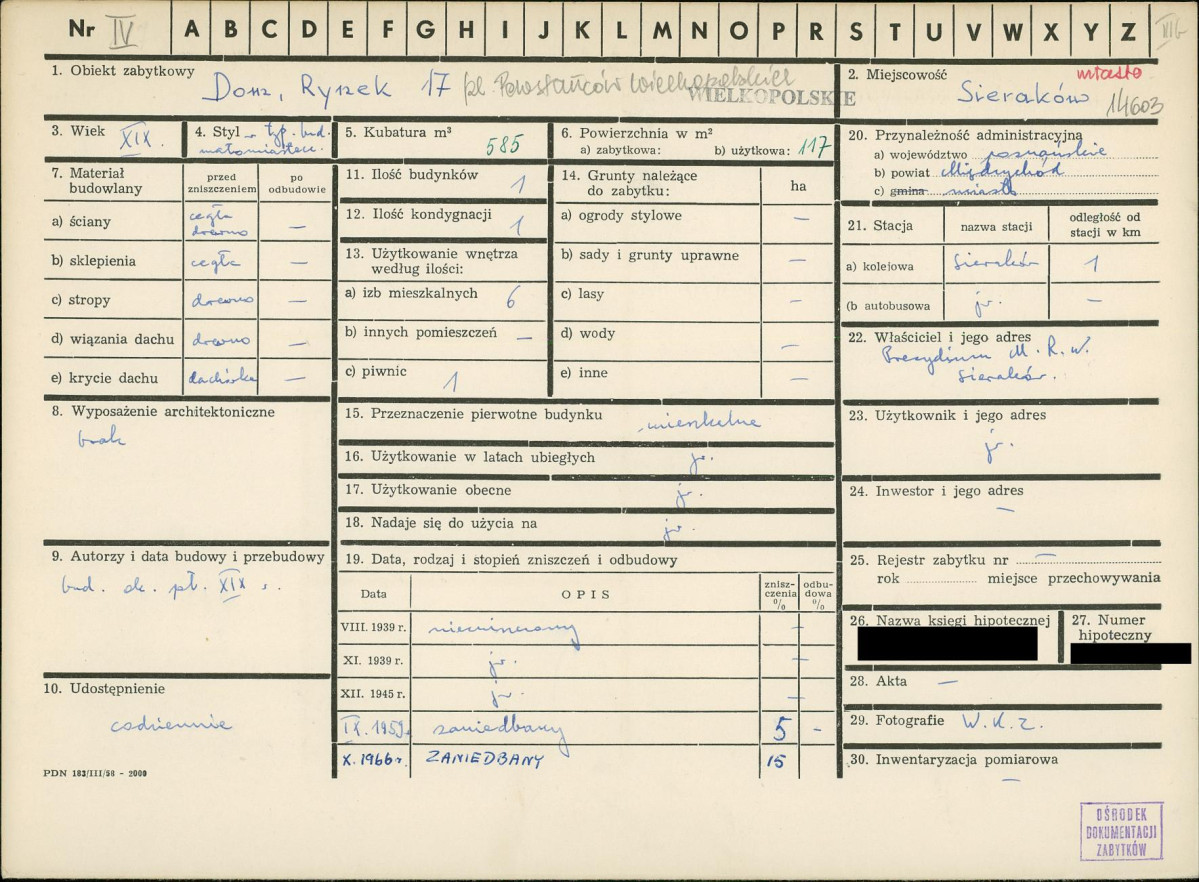 Nr IV A B C D E F G H I J K L M N O P R S T U V W X Y Z
1. Obiekt zabytkowy Dom, Rynek 17 pl. Powstańców Wielkopolskich
WIELKOPOLSKIE
2. Miejscowość miasto
Sieraków 14603
3. Wiek XIX.
4. Styl typ. bud.
małomiastecz.
5. Kubatura m³
585
6. Powierzchnia w m²
a) zabytkowa: b) użytkowa: 117
7. Materiał budowlany przed zniszczeniem po odbudowie
a) ściany cegła drewno —
b) sklepienia cegła —
c) stropy drewno —
d) wiązania dachu drewno —
e) krycie dachu dachówka —
8. Wyposażenie architektoniczne
brak
9. Autorzy i data budowy i przebudowy
bud. ok. poł. XIX w.
10. Udostępnienie
codziennie
PDN 183/III/58 - 2000
11. Ilość budynków 1
12. Ilość kondygnacji 1
13. Użytkowanie wnętrza
według ilości:
a) izb mieszkalnych 6
b) innych pomieszczeń —
c) piwnic 1
14. Grunty należące
do zabytku: ha
a) ogrody stylowe —
b) sady i grunty uprawne —
c) lasy —
d) wody —
e) inne —
15. Przeznaczenie pierwotne budynku mieszkalne
16. Użytkowanie w latach ubiegłych jw.
17. Użytkowanie obecne jw.
18. Nadaje się do użycia na jw.
19. Data, rodzaj i stopień zniszczeń i odbudowy
Data OPIS zniszczenia % odbudowa %
VIII. 1939 r. niezniszczony —
XI. 1939 r. jw. —
XII. 1945 r. jw. —
IX. 1959r. zaniedbany 5 -
X. 1966 r. ZANIEDBANY 15
20. Przynależność administracyjna
a) województwo poznańskie
b) powiat Międzychód
c) gmina miasto
21. Stacja nazwa stacji odległość od
stacji w km
a) kolejowa Sieraków 1
(b autobusowa jw. —
22. Właściciel i jego adres
Prezydium M. R. N.
Sieraków.
23. Użytkownik i jego adres
jw.
24. Inwestor i jego adres
—
25. Rejestr zabytku nr —
rok miejsce przechowywania
26. Nazwa księgi hipotecznej
27. Numer
hipoteczny
28. Akta —
29. Fotografie W. K. Z.
30. Inwentaryzacja pomiarowa
—
OŚRODEK
DOKUMENTACJI
ZABYTKÓW